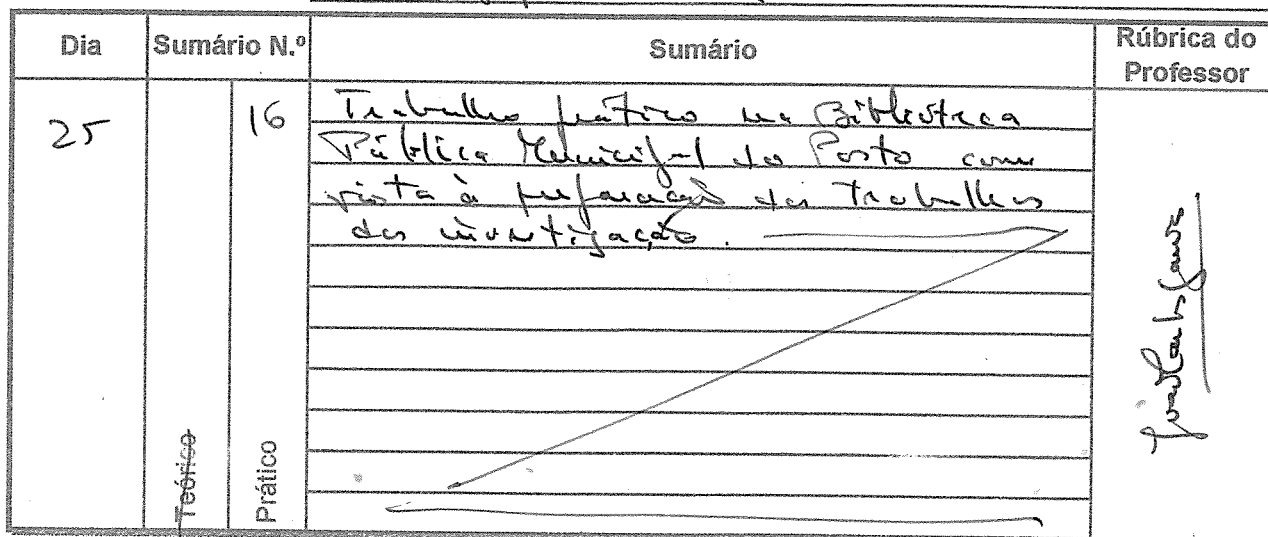 Dia Sumário N.º Sumário Rúbrica do Professor
25 16 Trabalho prático na Biblioteca
Pública Municipal do Porto com
vista à preparação dos trabalhos
de investigação.
Teórico Prático